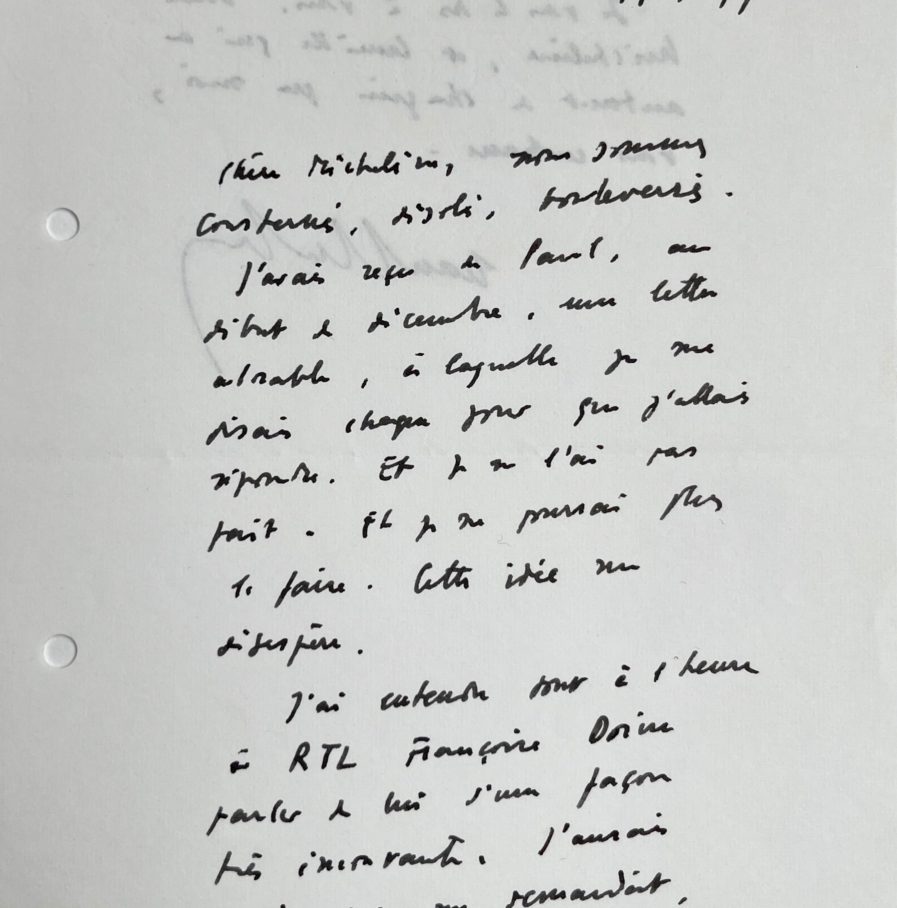 Chère Micheline, nous sommes
consternés, désolés, bouleversés.
J'avais reçu de Paul, au
début de décembre, une lettre
adorable, à laquelle je me
disais chaque jour que j'allais
répondre. Et je ne l'ai pas
fait. Et je ne pourrai plus
le faire. Cette idée me
désespère.
J'ai entendu tout à l'heure
à RTL Françoise Dorin
parler de lui d'une façon
très émouvante. J'aurais
me demandait,